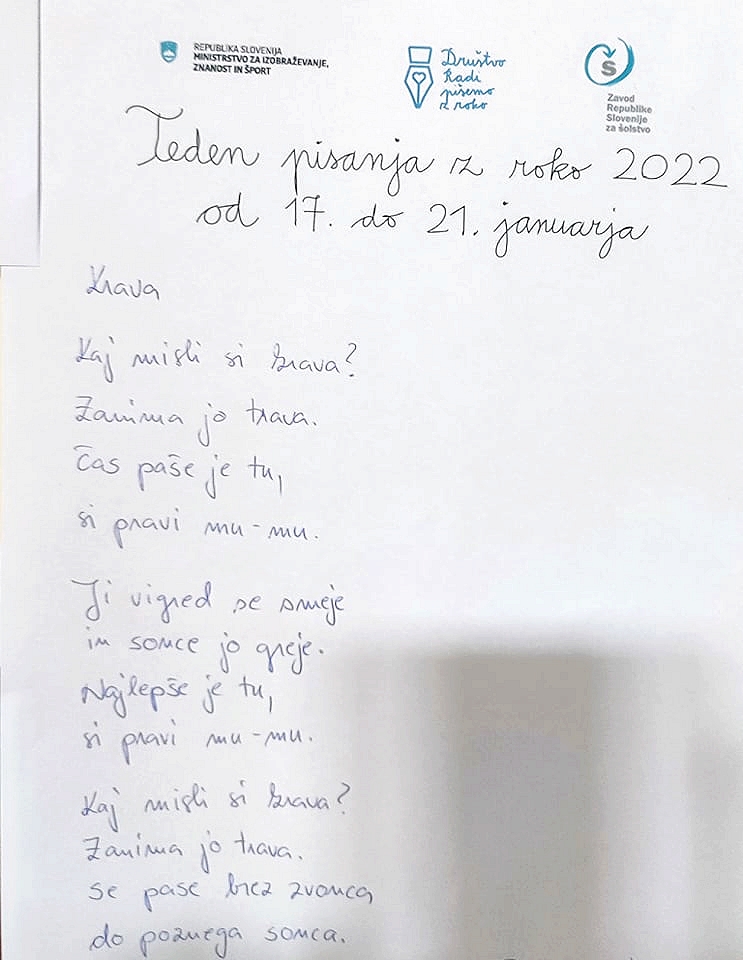 REPUBLIKA SLOVENIJA
MINISTRSTVO ZA IZOBRAŽEVANJE,
ZNANOST IN ŠPORT
Društvo
Radi
pišemo
z roko
Š
Zavod
Republike
Slovenije
za šolstvo
Teden pisanja z roko 2022
od 17. do 21. januarja
Krava
Kaj misli si krava?
Zanima jo trava.
Čas paše je tu,
si pravi mu-mu.
Ji vigred se smeje
in sonce jo greje.
Najlepše je tu,
si pravi mu-mu.
Kaj misli si krava?
Zanima jo trava.
se pase brez zvonca
do poznega sonca.